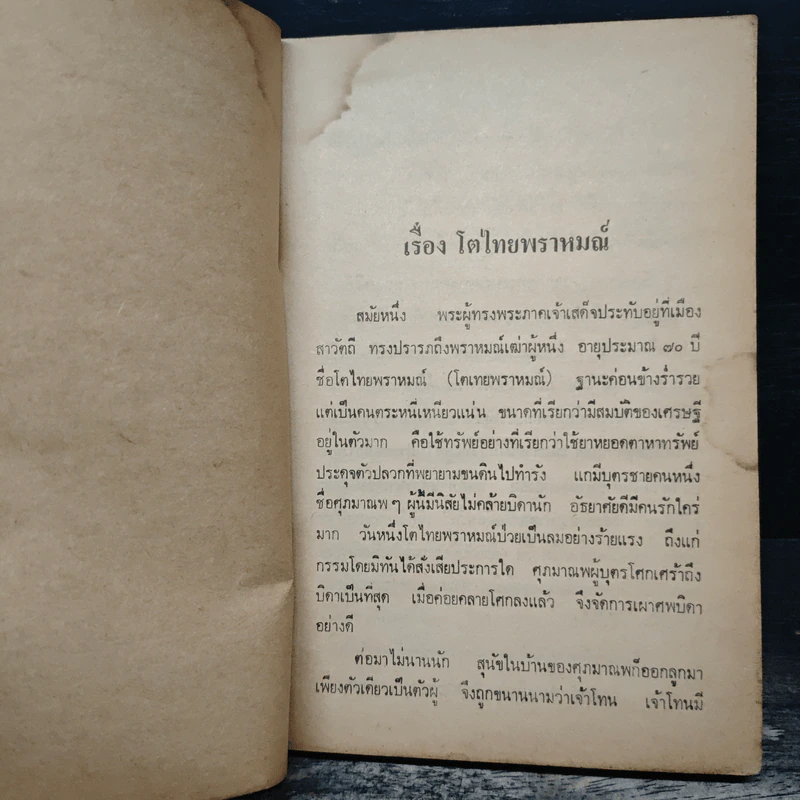 เรื่อง โตไทยพราหมณ์
สมัยหนึ่ง พระผู้ทรงพระภาคเจ้าเสด็จประทับอยู่ที่เมือง
สาวัตถี ทรงปรารภถึงพราหมณ์เฒ่าผู้หนึ่ง อายุประมาณ ๗๐ ปี
ชื่อโตไทยพราหมณ์ (โตเทยพราหมณ์) ฐานะค่อนข้างร่ำรวย
แต่เป็นคนตระหนี่เหนียวแน่น ขนาดที่เรียกว่ามีสมบัติของเศรษฐี
อยู่ในตัวมาก คือใช้ทรัพย์อย่างที่เรียกว่าใช้ยาหยอดตาหาทรัพย์
ประดุจตัวปลวกที่พยายามขนดินไปทำรัง แกมีบุตรชายคนหนึ่ง
ชื่อศุภมาณพ ๆ ผู้นี้มีนิสัยไม่คล้ายบิดานัก อัธยาศัยดีมีคนรักใคร่
มาก วันหนึ่งโตไทยพราหมณ์ป่วยเป็นลมอย่างร้ายแรง ถึงแก่
กรรมโดยมิทันได้สั่งเสียประการใด ศุภมาณพผู้บุตรโศกเศร้าถึง
บิดาเป็นที่สุด เมื่อค่อยคลายโศกลงแล้ว จึงจัดการเผาศพบิดา
อย่างดี
ต่อมาไม่นานนัก สุนัขในบ้านของศุภมาณพก็ออกลูกมา
เพียงตัวเดียวเป็นตัวผู้ จึงถูกขนานนามว่าเจ้าโทน เจ้าโทนมี